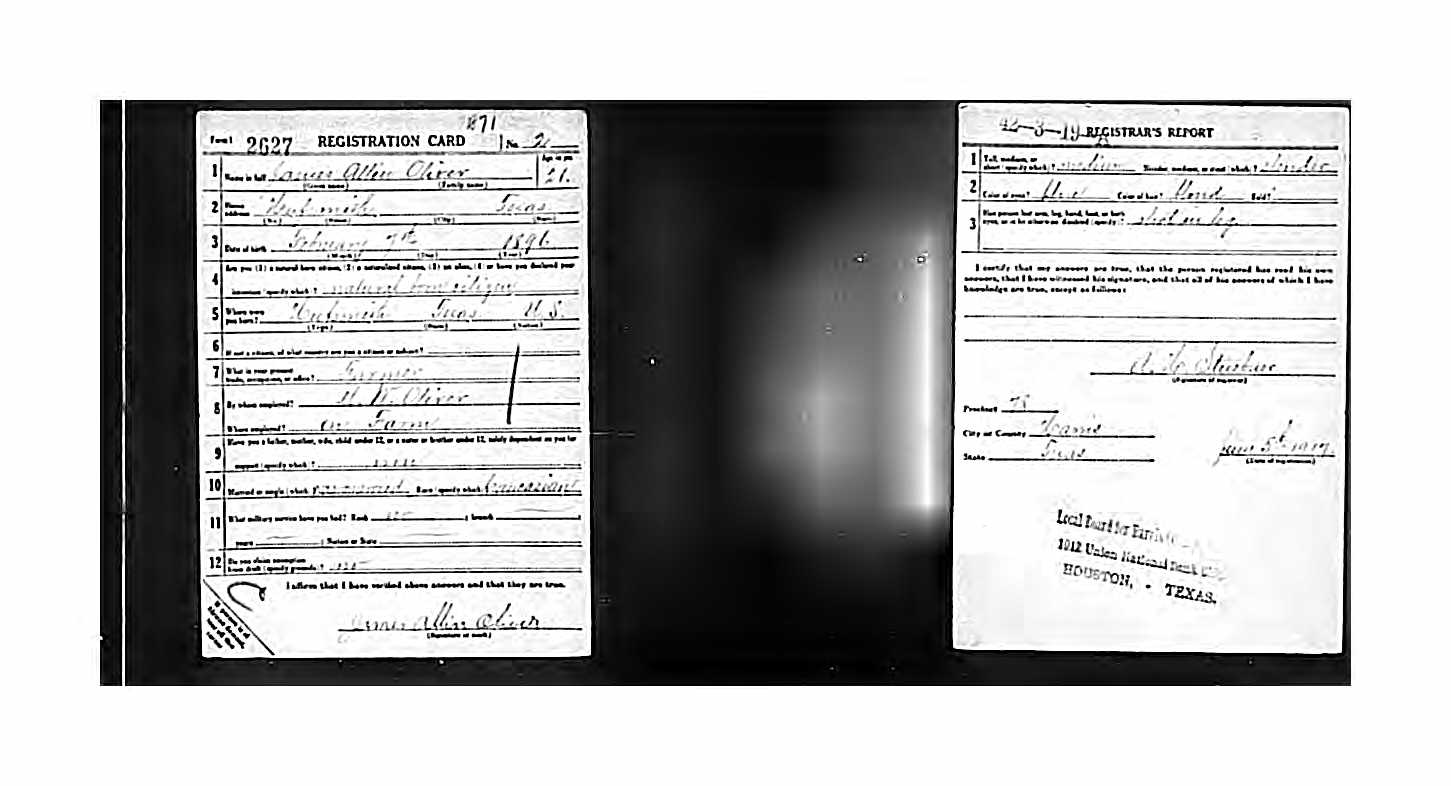 1871
Form 1 2627 REGISTRATION CARD No. 2
Age in yrs.
1 Name in full James Allin Oliver 21
(Given name) (Family name)
2 Home address Hufsmith Texas
(No.) (Street) (City) (State)
3 Date of birth February 7th 1896
(Month) (Day) (Year)
4 Are you (1) a natural born citizen, (2) a naturalized citizen, (3) an alien, (4) or have you declared your
intention (specify which)? natural born citizen
5 Where were you born? Hufsmith Texas U.S.
(Town) (State) (Nation)
6 If not a citizen, of what country are you a citizen or subject?
7 What is your present trade, occupation, or office? Farmer
8 By whom employed? W. Oliver
Where employed? on Farm
9 Have you a father, mother, wife, child under 12, or a sister or brother under 12, solely dependent on you for
support (specify which)?
10 Married or single (which)? Race (specify which)? Caucasian
11 What military service have you had? Rank no ; branch
years ; Nation or State
12 Do you claim exemption from draft (specify grounds)? no
I affirm that I have verified above answers and that they are true.
James Allin Oliver
(Signature or mark)
42-3-19 A REGISTRAR'S REPORT
1 Tall, medium, or short (specify which)? medium Slender, medium, or stout (which)? slender
2 Color of eyes? blue Color of hair? blond Bald?
3 Has person lost arm, leg, hand, foot, or both eyes, or is he otherwise disabled (specify)? leg
I certify that my answers are true, that the person registered has read his own
answers, that I have witnessed his signature, and that all of his answers of which I have
knowledge are true, except as follows:
(Signature of registrar)
Precinct
City or County Harris
State Texas
June 5th 1917
(Date of registration)
Local Board for
1012 Union National Bank
HOUSTON, - TEXAS.